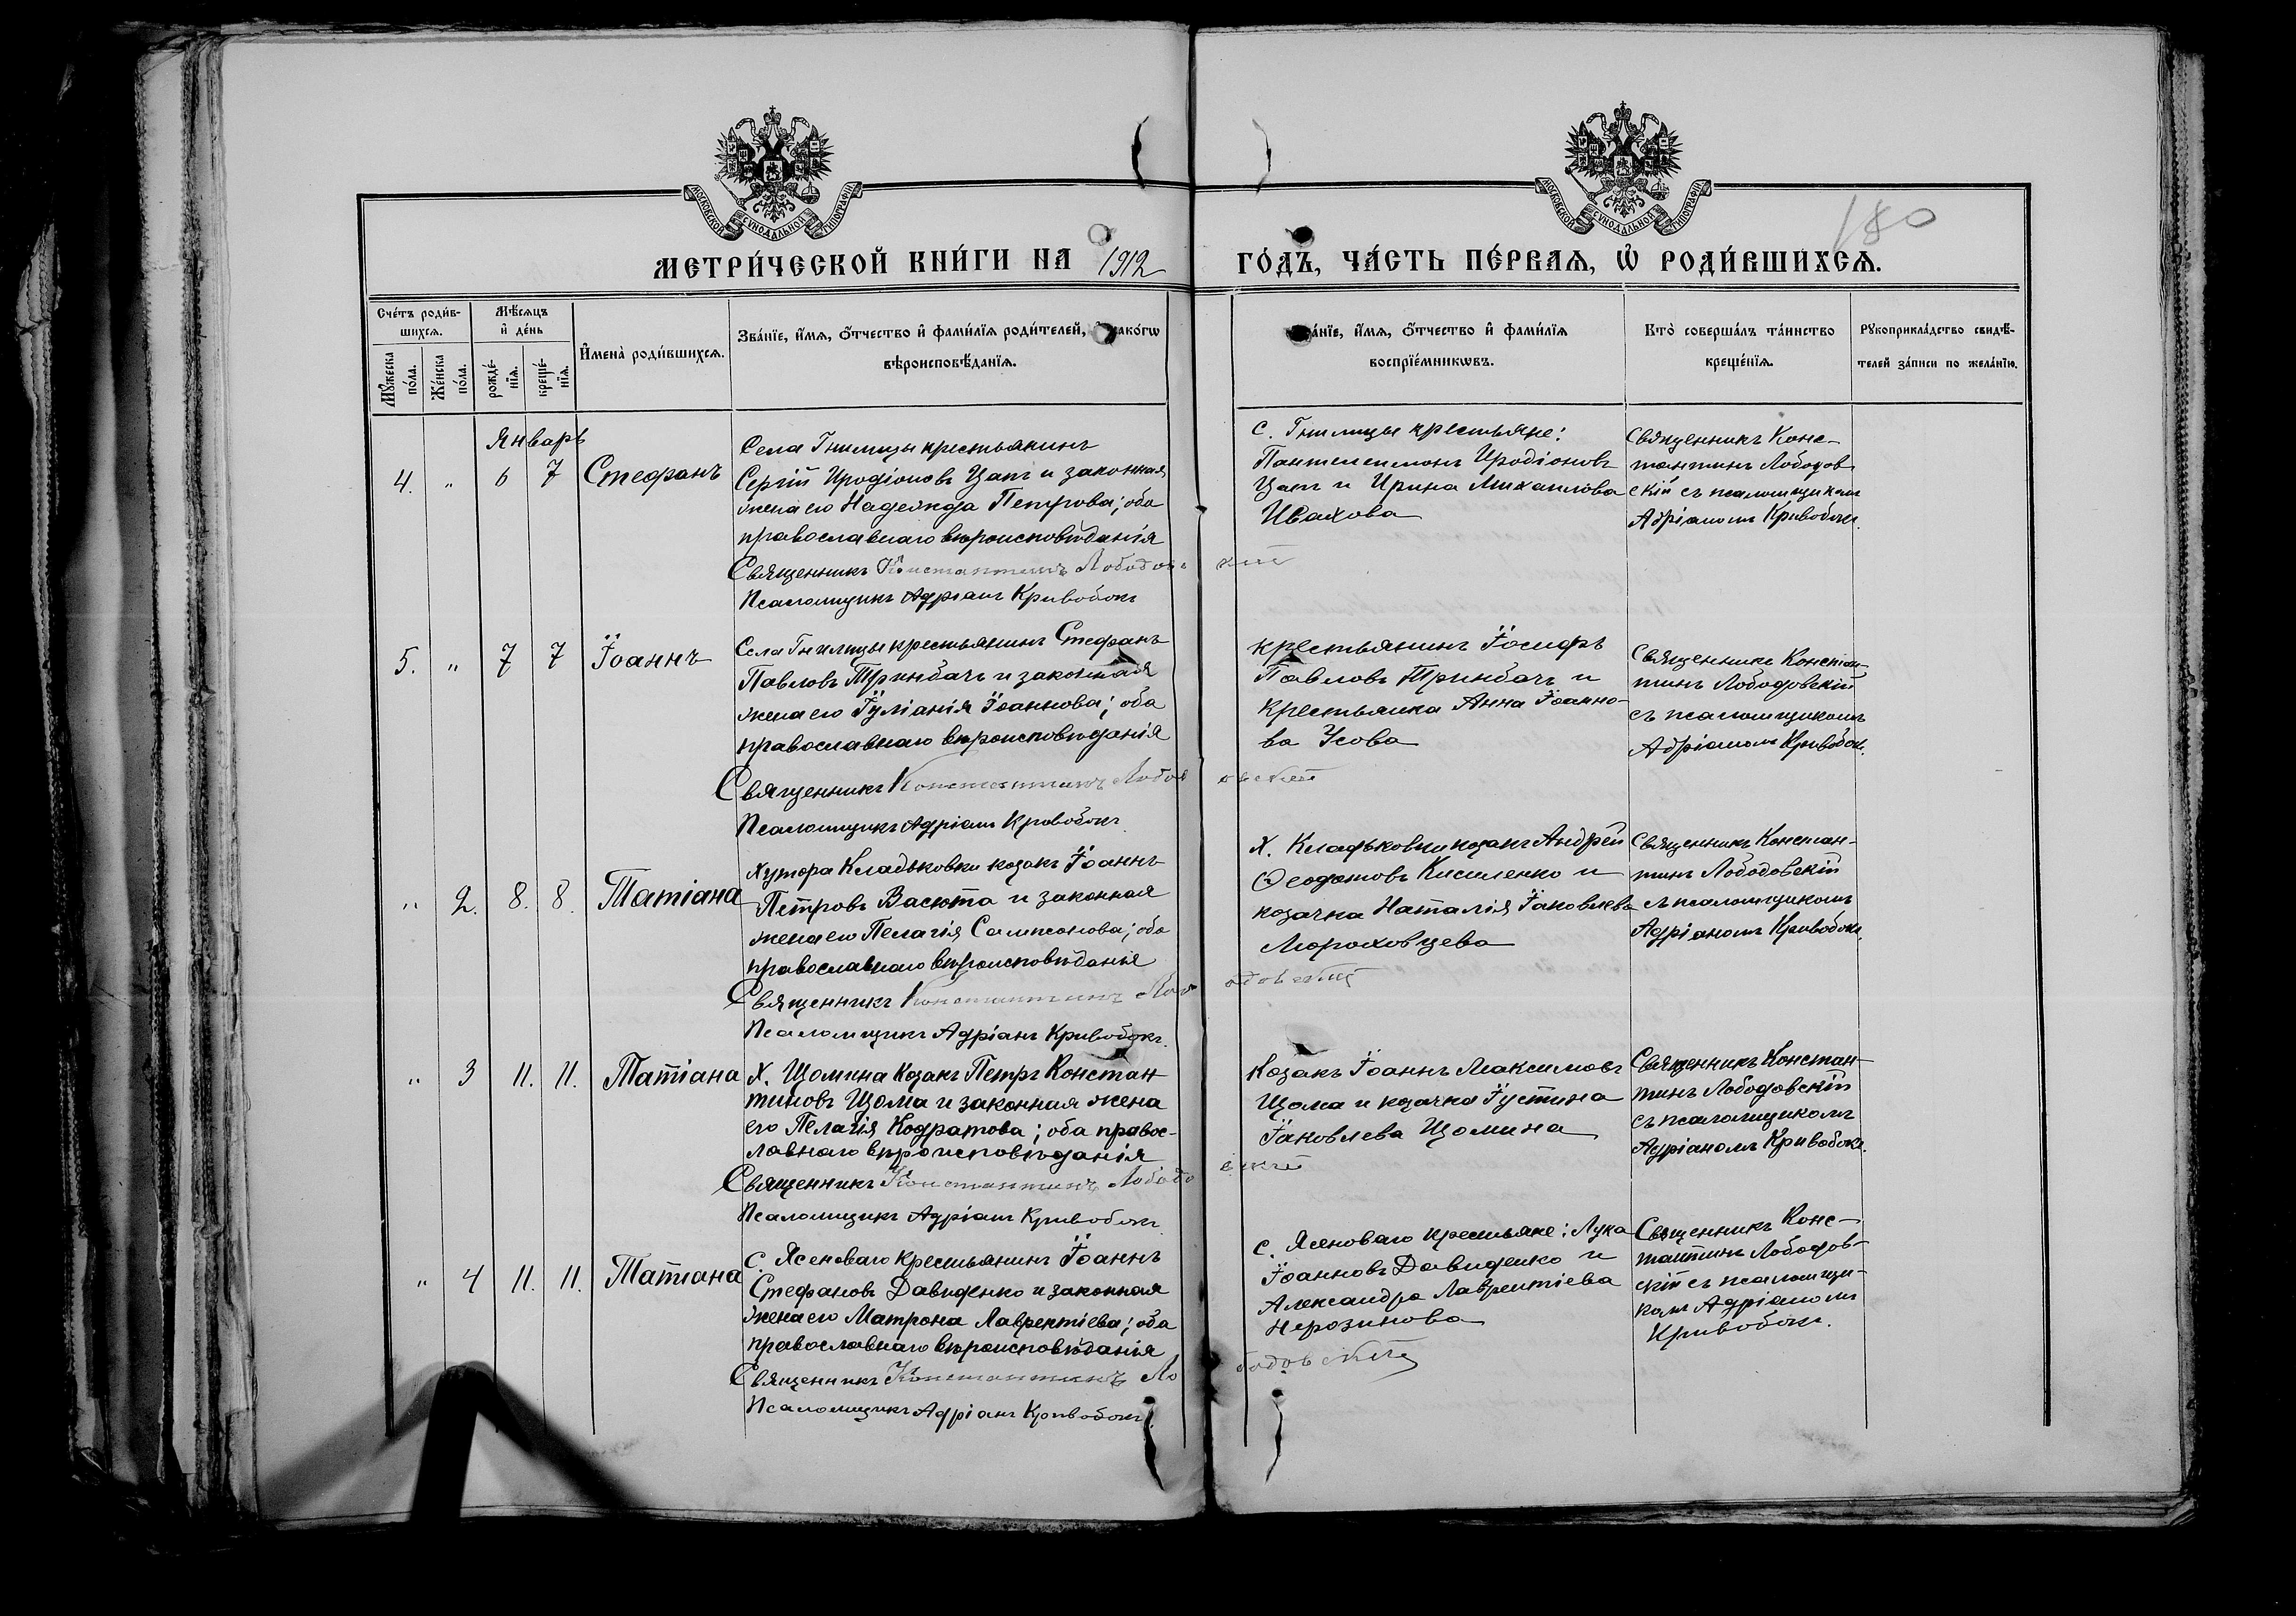 МОСКОВСКОЙ СѴНОДАЛЬНОЙ ТИПОГРАФІИ
МОСКОВСКОЙ СѴНОДАЛЬНОЙ ТИПОГРАФІИ
180
МЕТРИ́ЧЕСКОЙ КНИ́ГИ НА 1912 ГО́ДЪ, ЧА́СТЬ ПЕ́РВАѦ, Ѡ҆ РОДИ́ВШИХСѦ.
Сче́тъ роди́в-
шихсѧ.
Мꙋ́жеска по́ла.
Же́нска по́ла.
Мѣ́сѧцъ
и҆ де́нь
рожде́-нїѧ.
креще́-нїѧ.
И҆мена̀ роди́вшихсѧ.
Зва́нїе, и҆́мѧ, ѻ҆́тчество и҆ фами́лїѧ роди́телей, како́гѡ
вѣроисповѣ́данїѧ.
а́нїе, и҆́мѧ, ѻ҆́тчество и҆ фами́лїѧ
воспрїе́мникѡвъ.
Кто̀ соверша́лъ та́инство
креще́нїѧ.
Рꙋкоприкла́дство свидѣ́-
телей за́писи по жела́нїю.
Январь
4. " 6 7 Стефанъ
Села Гнилицы крестьянинъ
Сергій Иродіоновъ Цапъ и законная
жена его Надежда Петрова; оба
православнаго вѣроисповѣданія
Священникъ Константинъ Лободовскій
Псаломщикъ Адріанъ Кривобокъ
с. Гнилицы крестьяне:
Пантелеимонъ Иродіоновъ
Цапъ и Ирина Михаилова
Ивахова
Священникъ Конс-
тантинъ Лободов-
скій съ псаломщикомъ
Адріаномъ Кривобок.
5. " 7 7 Іоаннъ
Села Гнилицы крестьянинъ Стефанъ
Павловъ Тринбачъ и законная
жена его Іуліанія Іоаннова; оба
православнаго вѣроисповѣданія
Священникъ Константинъ Лободовскій
Псаломщикъ Адріанъ Кривобокъ
крестьянинъ Іосифъ
Павловъ Тринбачъ и
крестьянка Анна Іоанно-
ва Усова
Священникъ Констан-
тинъ Лободовскій
съ псаломщикомъ
Адріаномъ Кривобок.
" 2. 8. 8. Татіана
Хутора Кладьковки козакъ Іоаннъ
Петровъ Васюта и законная
жена его Пелагія Сампсонова; оба
православнаго вѣроисповѣданія
Священникъ Константинъ Лободовскій
Псаломщикъ Адріанъ Кривобокъ.
х. Кладьковки козакъ Андрей
Ѳеодотовъ Кисиленко и
козачка Наталія Іаковлева
Мороховцева
Священникъ Констан-
тинъ Лободовскій
съ псаломщикомъ
Адріаномъ Кривобок.
" 3 11. 11. Татіана
х. Щомина козакъ Петръ Констан
тиновъ Щома и законная жена
его Пелагія Кодратова; оба право-
славнаго вѣроисповѣданія
Священникъ Константинъ Лободовскій
Псаломщикъ Адріанъ Кривобокъ
Козакъ Іоаннъ Максимовъ
Щома и козачка Іустина
Іаковлева Щомина
Священникъ Констан-
тинъ Лободовскій
съ псаломщикомъ
Адріаномъ Кривобок.
" 4 11. 11. Татіана
с. Ясеноваго крестьянинъ Іоаннъ
Стефановъ Давиденко и законная
жена его Матрона Лаврентіева; оба
православнаго вѣроисповѣданія
Священникъ Константинъ Лободовскій
Псаломщикъ Адріанъ Кривобокъ.
с. Ясеноваго крестьяне: Лука
Іоанновъ Давиденко и
Александра Лаврентіева
Священникъ Конс-
тантинъ Лободов-
скій съ псаломщи-
комъ Адріаномъ
Кривобок.